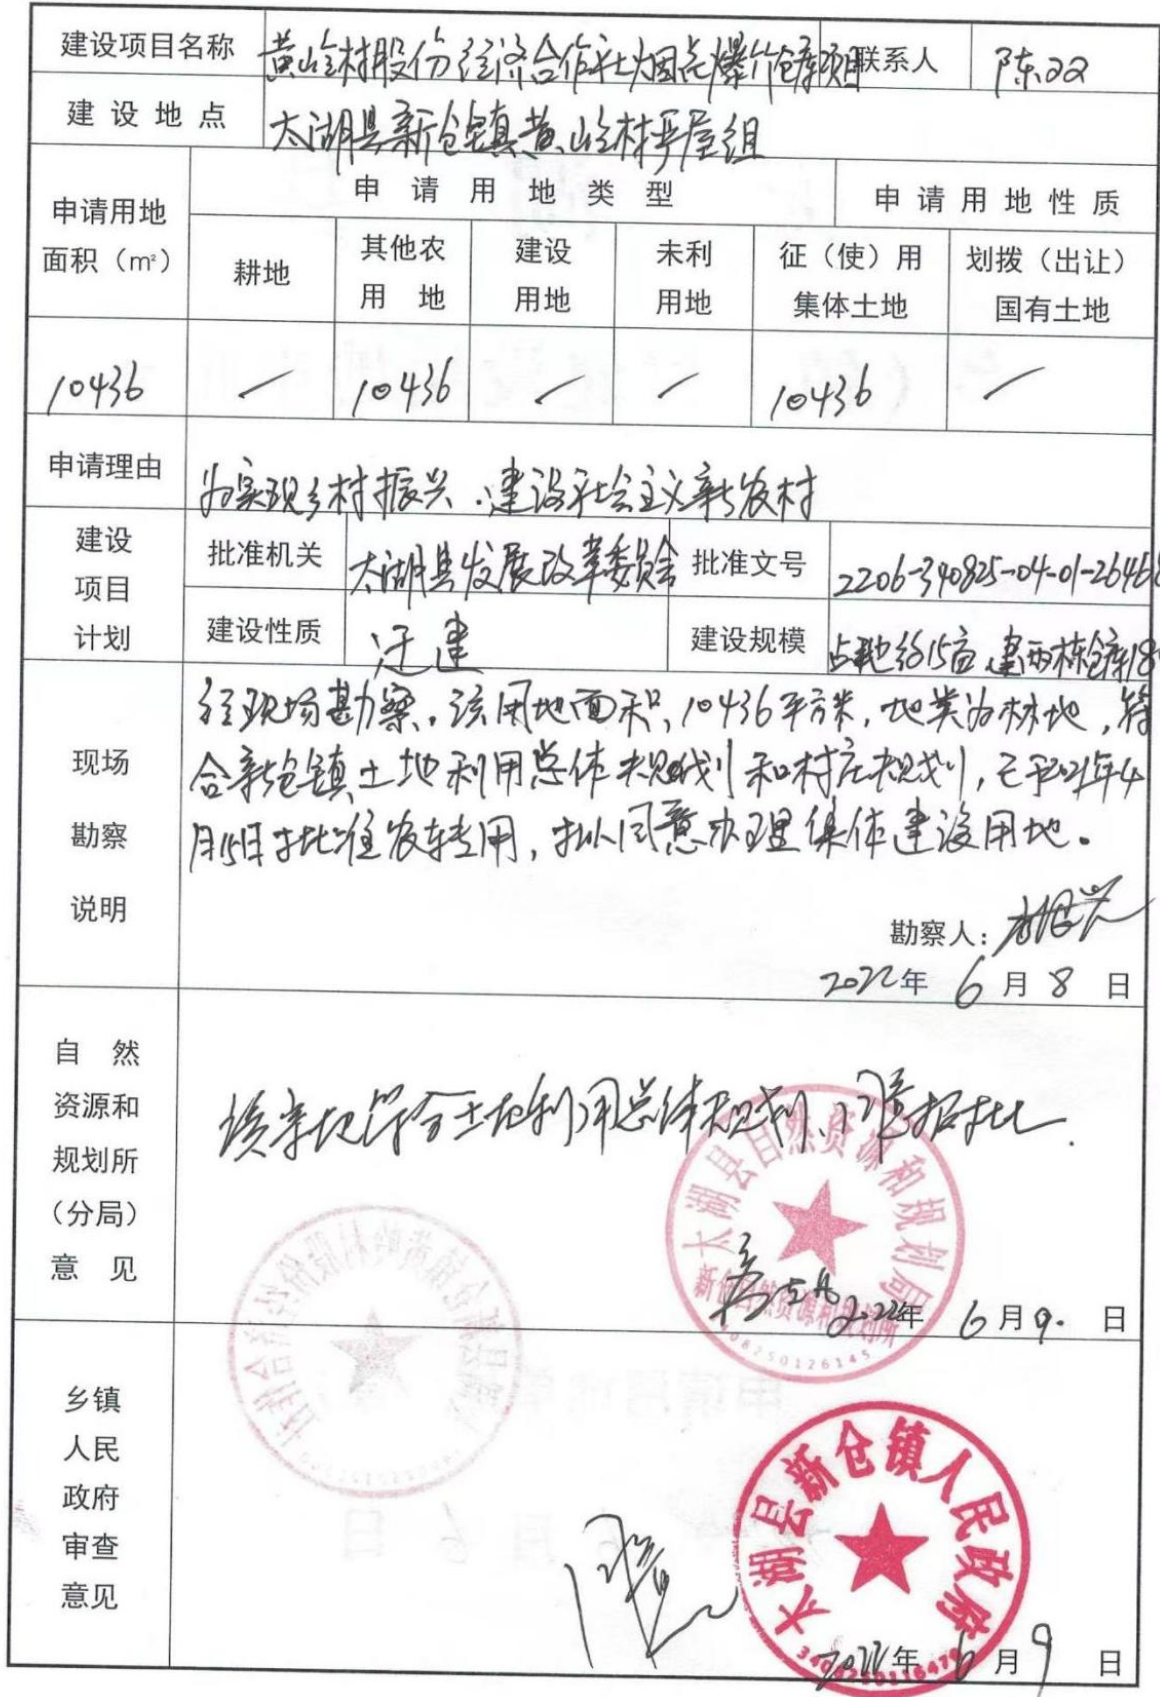 建设项目名称 黄岭村股份经济合作社烟花爆竹仓库项目 联系人 陈双
建设地点 太湖县新仓镇黄岭村坪屋组
申请用地面积（㎡） 申请用地类型 申请用地性质
耕地 其他农用地 建设用地 未利用地 征（使）用集体土地 划拨（出让）国有土地
10436 — 10436 — — 10436 —
申请理由 为实现乡村振兴、建设社会主义新农村
建设项目计划 批准机关 太湖县发展改革委员会 批准文号 2206-340825-04-01-26468
建设性质 迁建 建设规模 占地约15亩 建两栋仓库18
现场勘察说明
经现场勘察，该用地面积，10436平方米，地类为林地，符
合新仓镇土地利用总体规划和村庄规划，已于2021年4
月15日批准农转用，拟同意办理集体建设用地。
勘察人：
2022年 6月8日
自然资源和规划所（分局）意见
该宗地符合土地利用总体规划、同意报批.
太湖县自然资源和规划局
新仓自然资源和规划所
2022年 6月9.日
乡镇人民政府审查意见
同意
太湖县新仓镇人民政府
2022年 6月9日